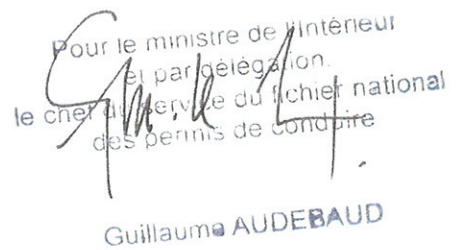 Pour le ministre de l'Intérieur
et par délégation.
le chef du service du fichier national
des permis de conduire
Guillaume AUDEBAUD